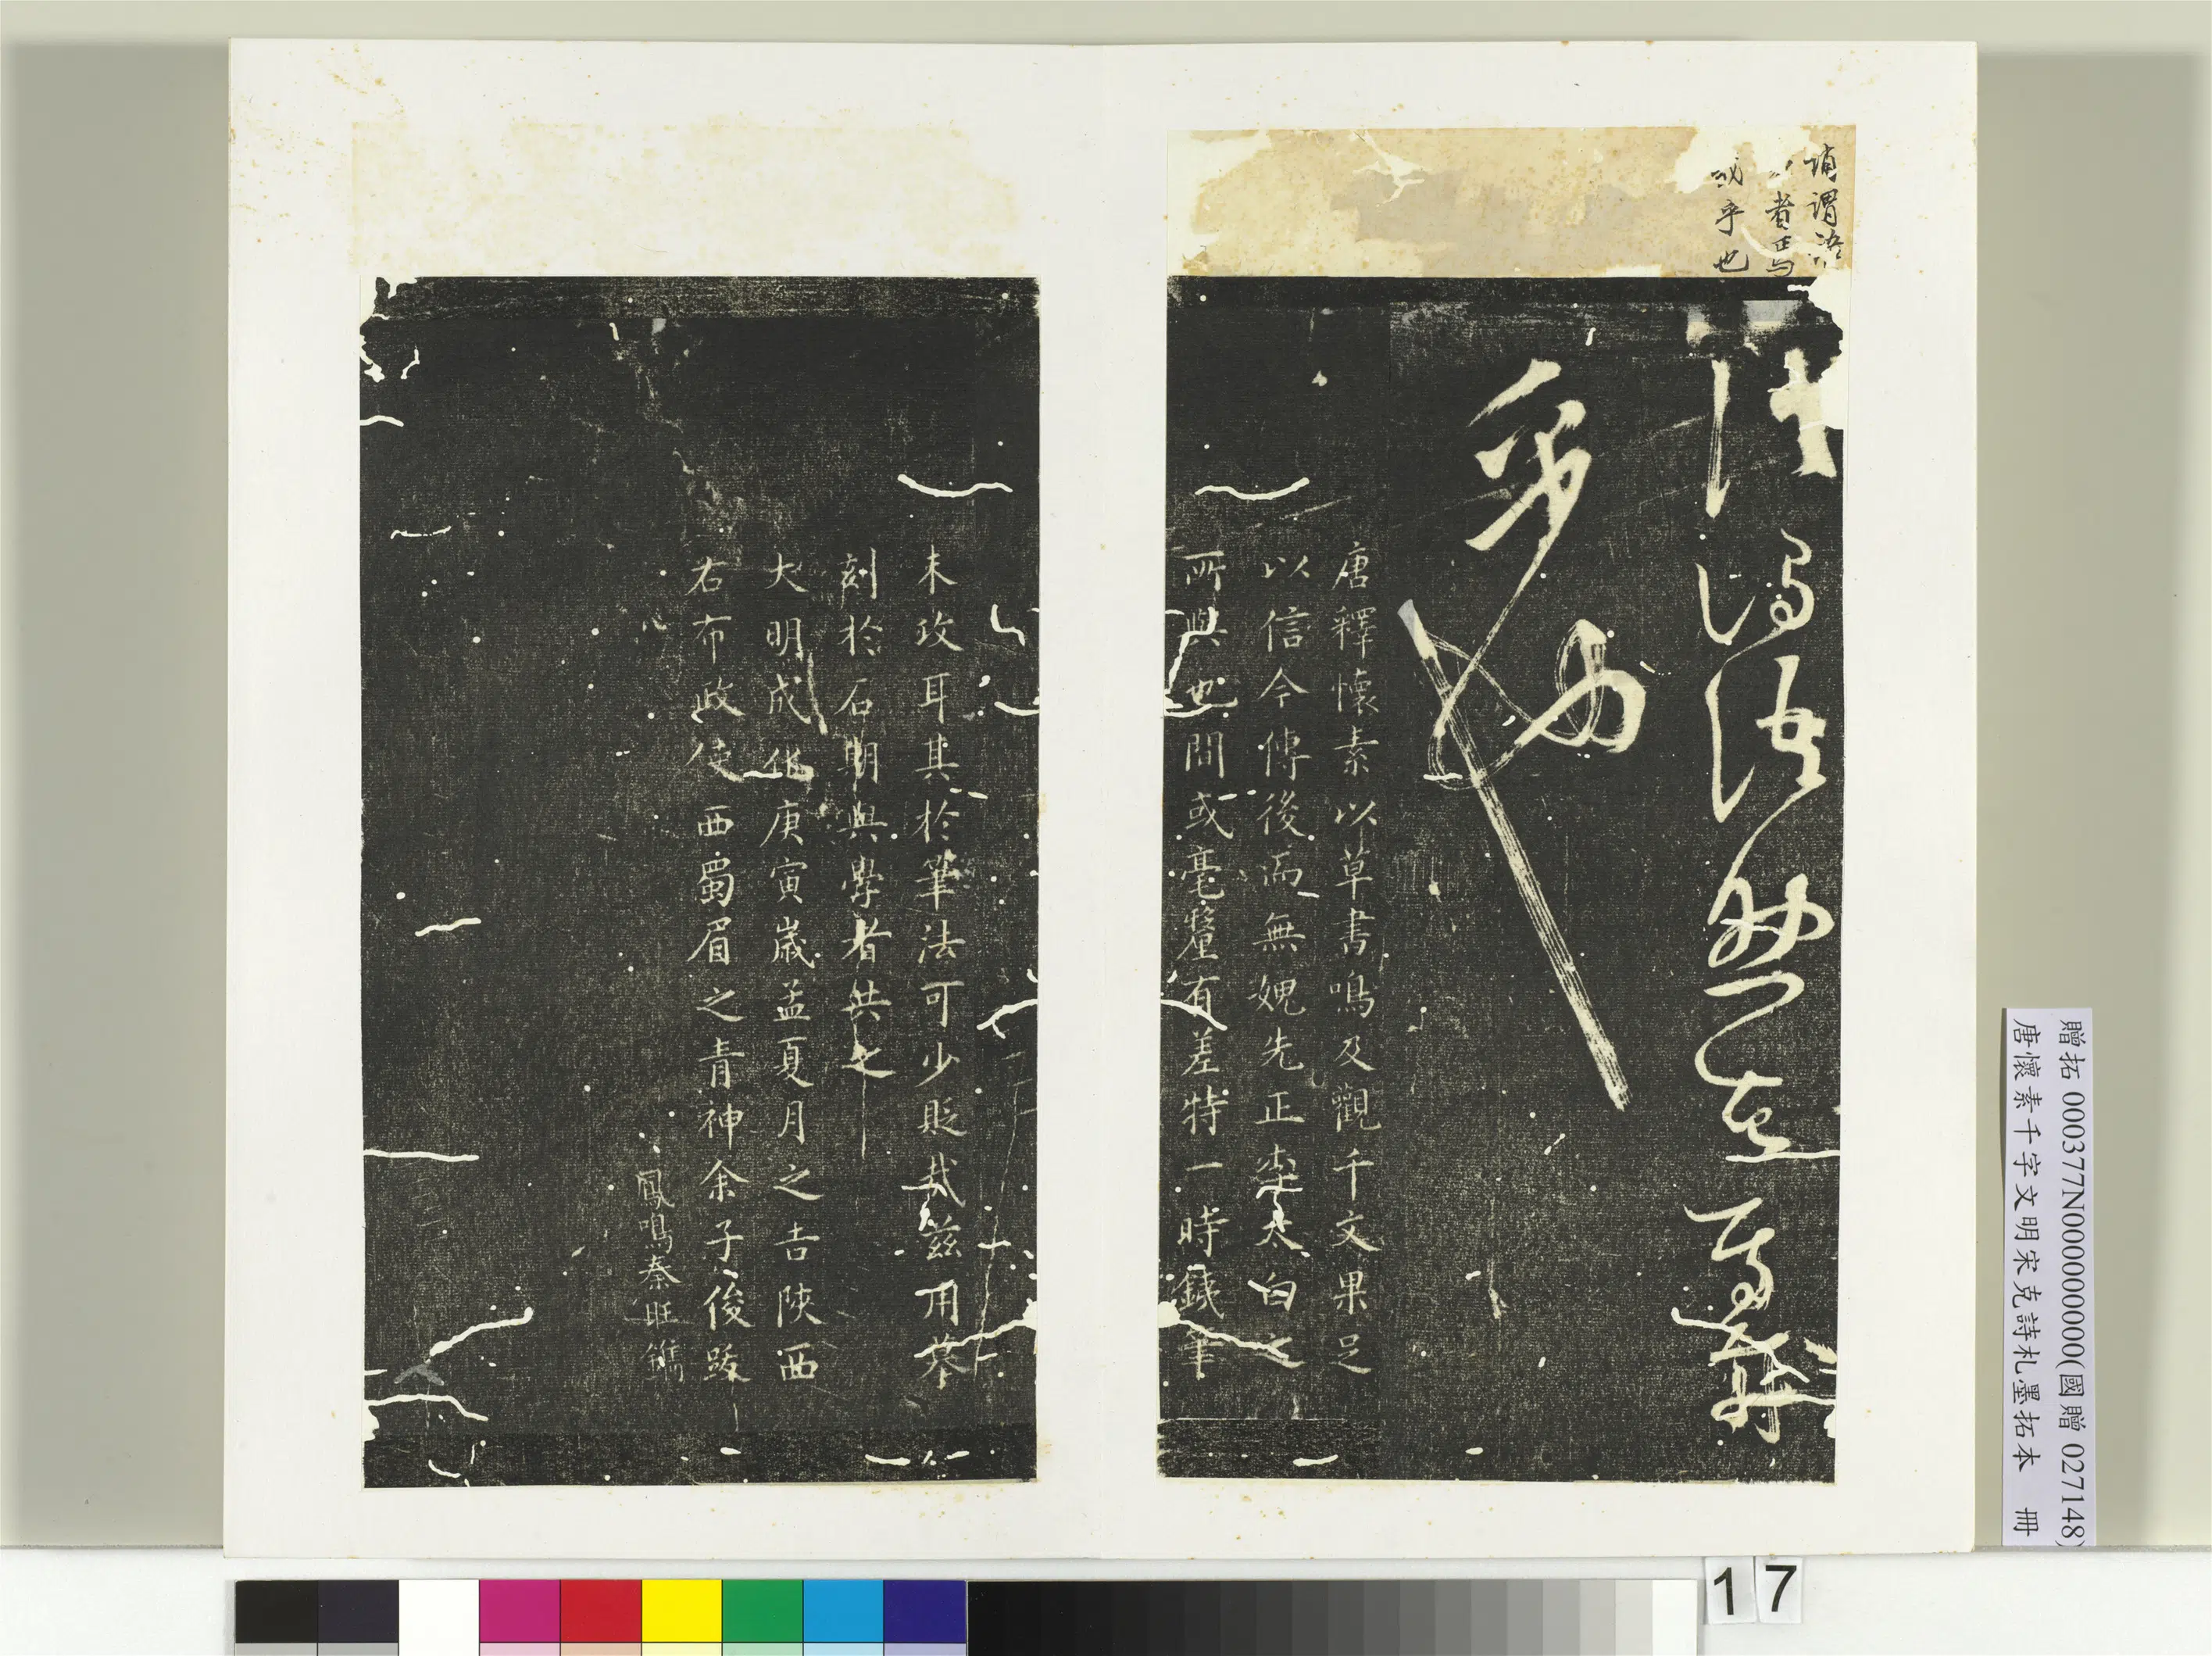 謂語
者焉
哉乎也
謂語助者焉哉
乎也
唐釋懷素以草書鳴及觀千文果足
以信今傳後而無媿先正李太白之
所與也間或毫釐有差特一時鐵筆
未攻耳其於筆法可少貶哉茲用摹
刻於石期與學者共之
大明成化庚寅歲孟夏月之吉陝西
右布政使西蜀眉之青神余子俊跋
鳳鳴秦旺鐫
贈拓 000377N000000000(國贈 027148)
唐懷素千字文明宋克詩札墨拓本 冊
17